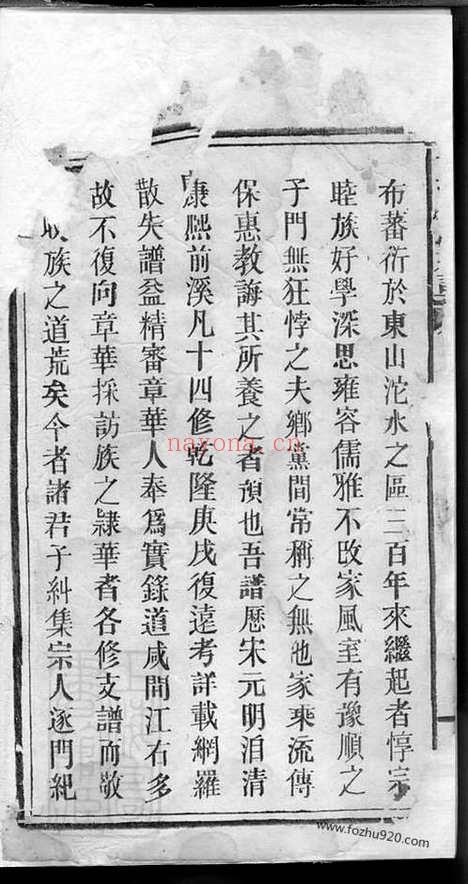 布蕃衍於東山沱水之區三百年來繼起者惇宗
睦族好學深思雍容儒雅不改家風室有豫順之
子門無狂悖之夫鄉黨間常稱之無他家乘流傳
保惠教誨其所養之者預也吾譜歷宋元明洎清
康熙前溪凡十四修乾隆庚戌復遠考詳載網羅
散失譜益精審章華人奉爲實錄道咸間江右多
故不復向章華採訪族之隸華者各修支譜而敬
族之道荒矣今者諸君子糾集宗人逐門紀
nayona.cn
www.fozhu920.com